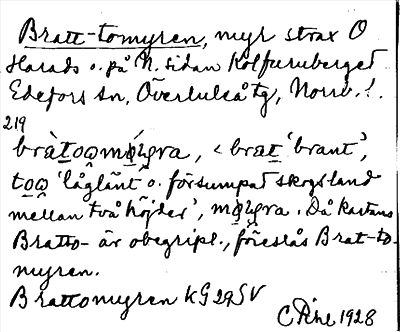 Bratt-tomyren, myr strax O
Harads o. på N. sidan Kolfuruberget
Edefors sn, Överluleå tg, Norrb. l.
219
bratto mȯ̈gra, < bratt 'brant',
too 'låglänt o. försumpad skogsland
mellan två höjder', . Då kartans
Bratto- är obegripl., föreslås Brat-to-
myren.
Brattomyren KG 29 SV
1928